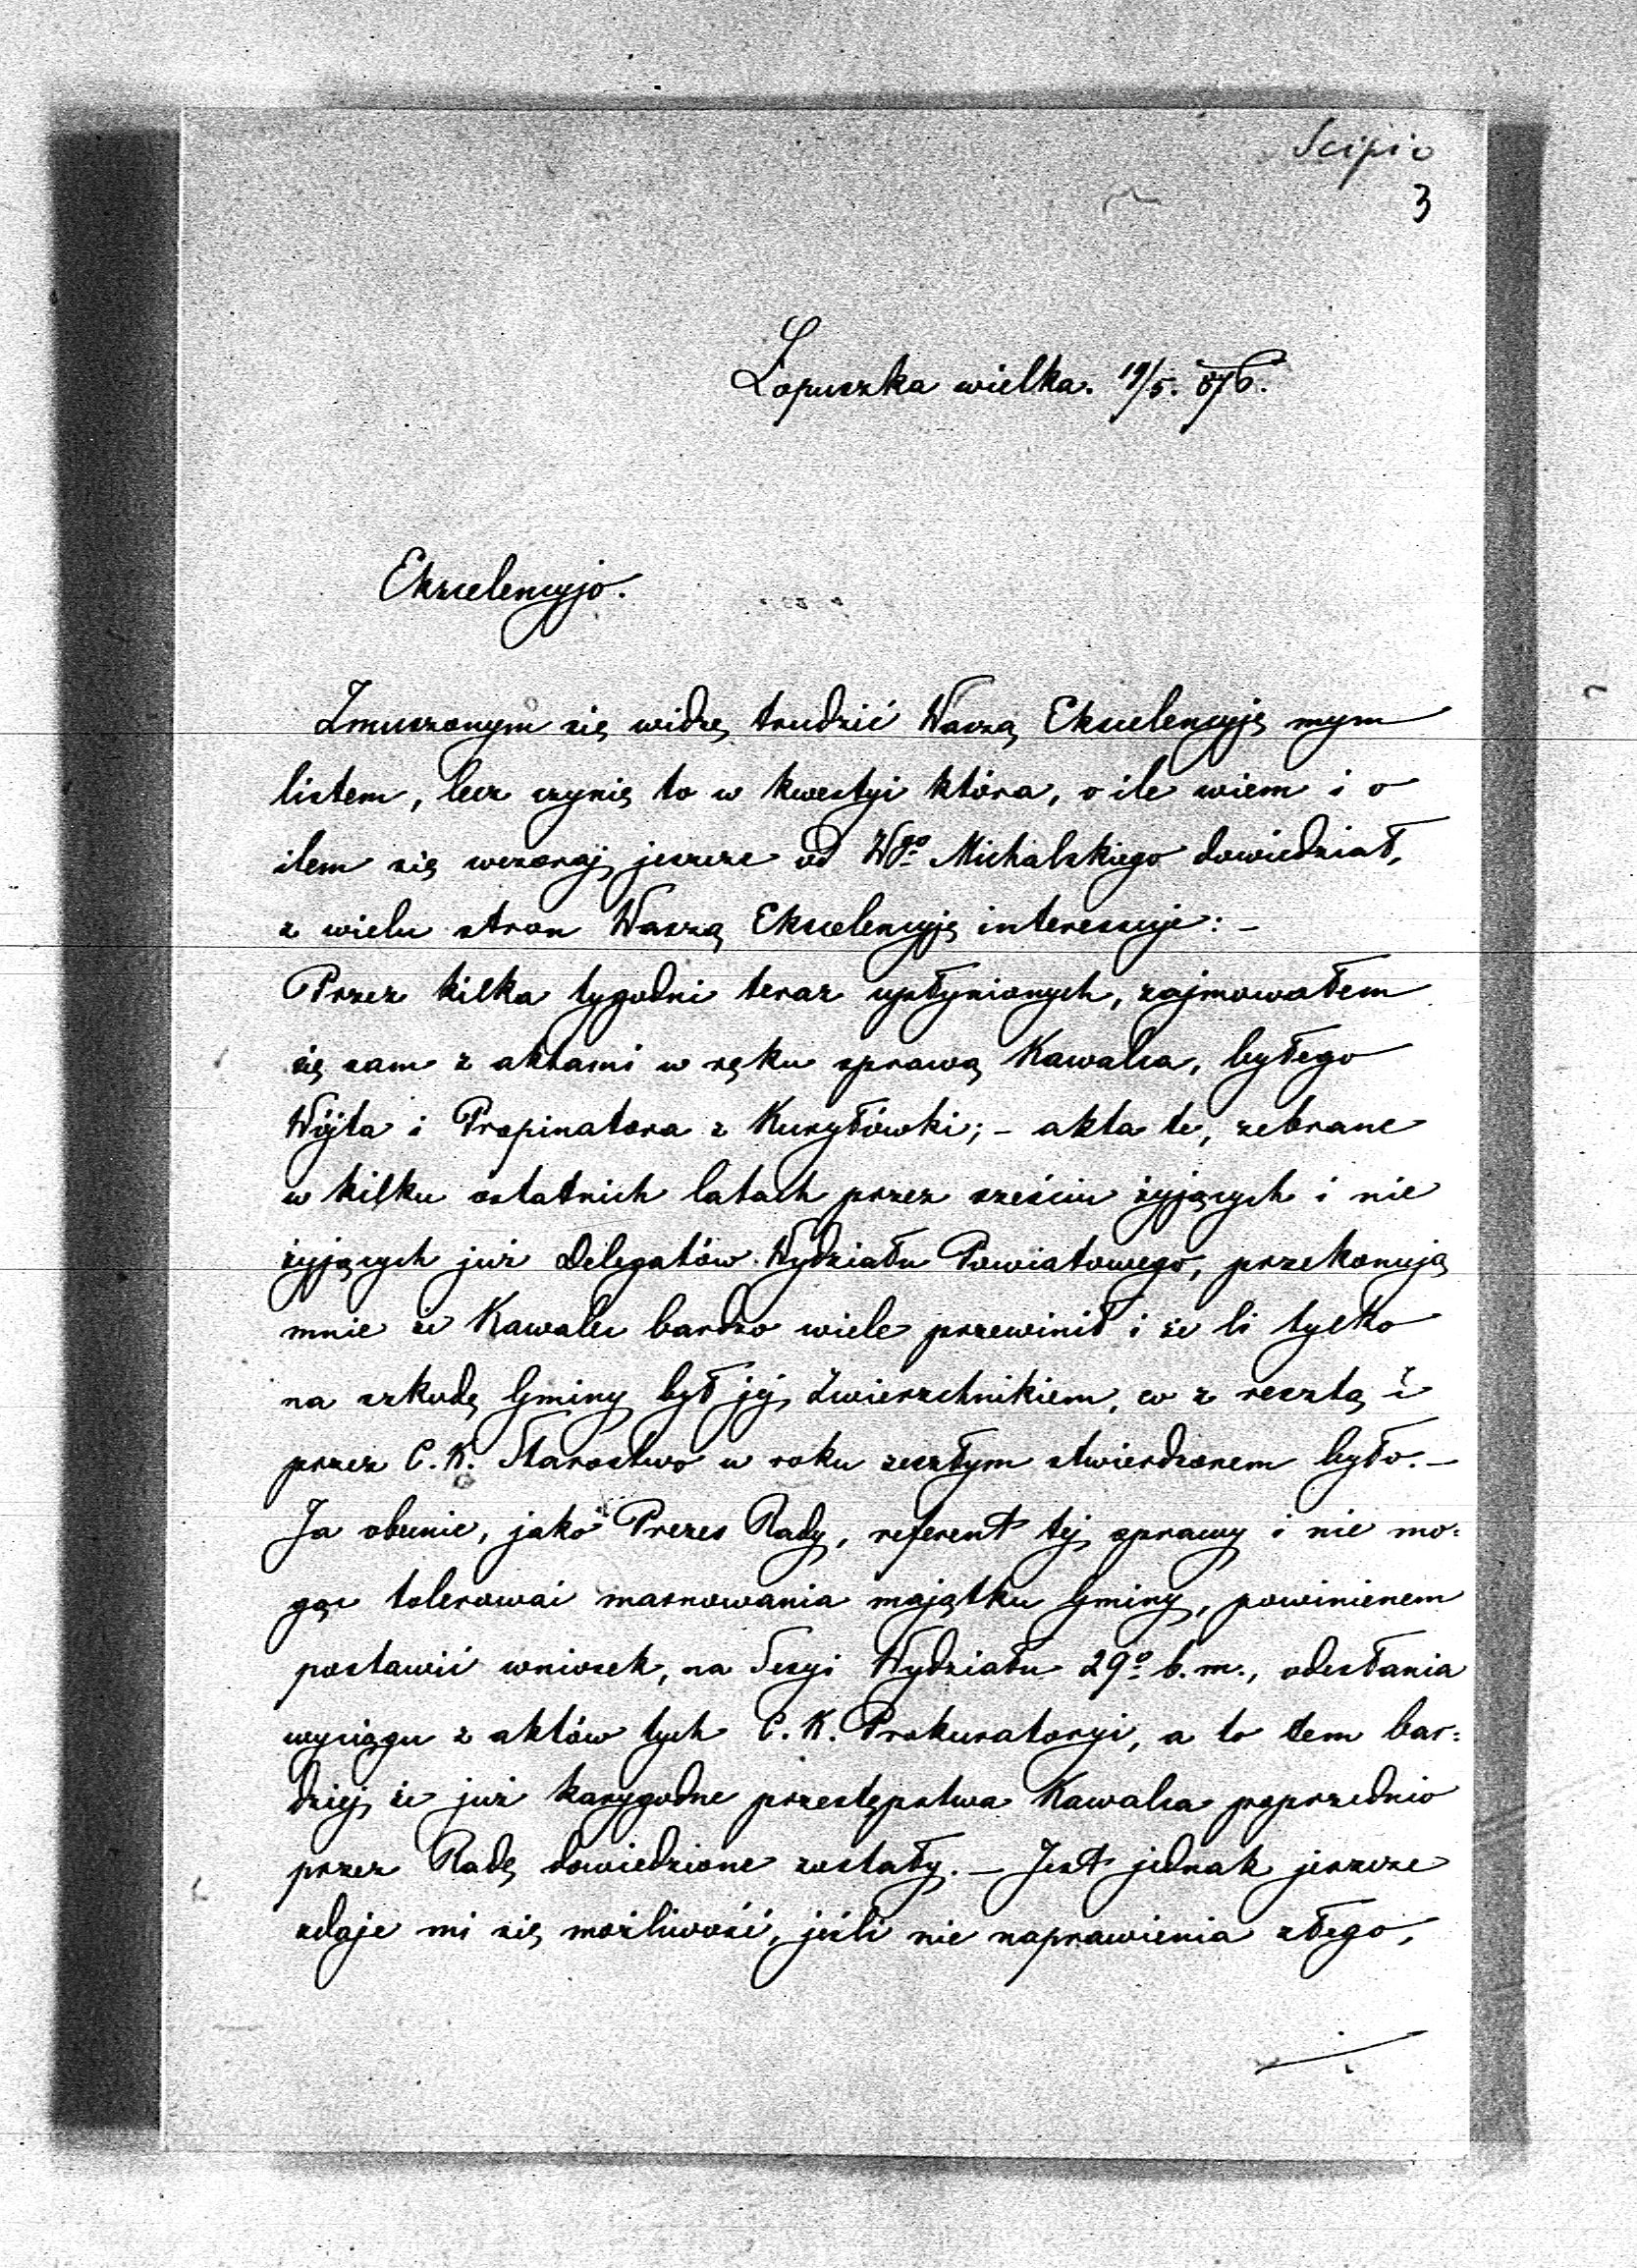 Scipio
3
Łopuszka wielka. 19/5. 876.
Ekscelencyjo.
Zmuszonym się widzę trudzić Waszą Ekscelencyję mym
listem, lecz czynię to w kwestyi która, o ile wiem i o
ilem się wczoraj jeszcze od Wgo Michalskiego dowiedział,
z wielu stron Waszą Ekscelencyję interesuje: –
Przez kilka tygodni teraz upłynionych, zajmowałem
się sam z aktami w ręku sprawą Kawalca, byłego
Wójta i Propinatora z Kuryłówki; – akta te, zebrane
w kilku ostatnich latach przez sześciu żyjących i nie
żyjących już Delegatów Wydziału Powiatowego, przekonują
mnie że Kawalec bardzo wiele przewinił i że li tylko
na szkodę Gminy był jej Zwierzchnikiem, co z resztą i
przez C. K. Starostwo w roku zeszłym stwierdzonem było. –
Ja obecnie, jako Prezes Rady, referent tej sprawy i nie mo-
gąc tolerować marnowania majątku Gminy, powinienem
postawić wniosek, na Sesyi Wydziału 29o b. m., odesłania
wyciągu z aktów tych C. K. Prokuratoryi, a to tem bar-
dziej że już karygodne przestępstwa Kawalca poprzednio
przez Radę dowiedzione zostały. – Jest jednak jeszcze
zdaje mi się możliwość, jeśli nie naprawienia złego,